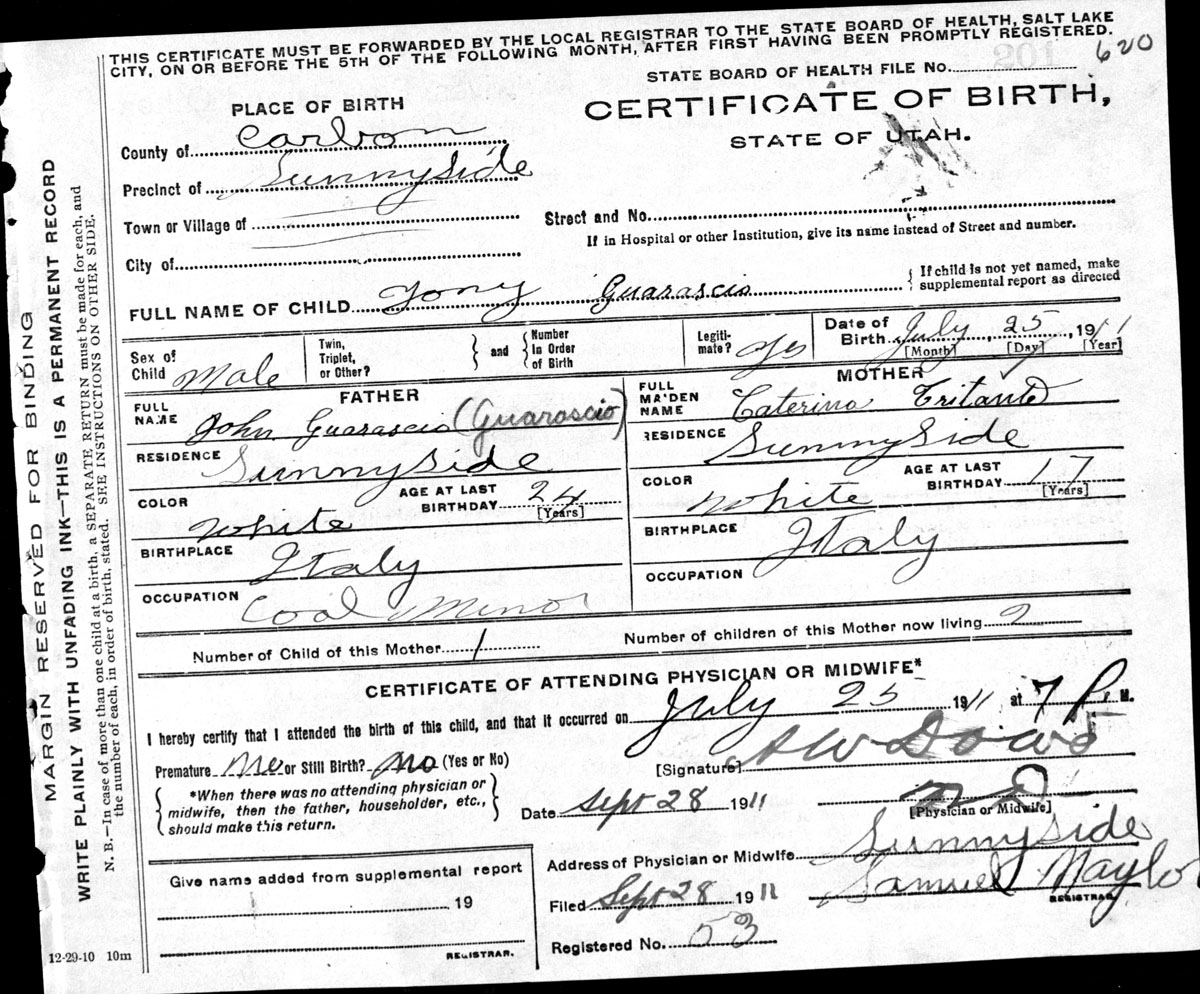 THIS CERTIFICATE MUST BE FORWARDED BY THE LOCAL REGISTRAR TO THE STATE BOARD OF HEALTH, SALT LAKE
CITY, ON OR BEFORE THE 5TH OF THE FOLLOWING MONTH, AFTER FIRST HAVING BEEN PROMPTLY REGISTERED.
STATE BOARD OF HEALTH FILE No. 620
PLACE OF BIRTH
CERTIFICATE OF BIRTH,
STATE OF UTAH.
County of Carbon
Precinct of Sunnyside
Town or Village of
Street and No.
If in Hospital or other Institution, give its name instead of Street and number.
City of
FULL NAME OF CHILD Tony Guarascio
{ If child is not yet named, make
supplemental report as directed
Sex of
Child Male
Twin,
Triplet,
or Other?
} and {
Number
in Order
of Birth
Legiti-
mate? Yes
Date of
Birth July, 25, 1911
[Month] [Day] [Year]
FATHER
FULL
NAME John Guarascio (Guarascio)
RESIDENCE Sunnyside
COLOR White
AGE AT LAST
BIRTHDAY 24
[Years]
BIRTHPLACE Italy
OCCUPATION Coal Minor
MOTHER
FULL
MAIDEN
NAME Caterina Tritante
RESIDENCE Sunnyside
COLOR White
AGE AT LAST
BIRTHDAY 17
[Years]
BIRTHPLACE Italy
OCCUPATION
Number of Child of this Mother 1
Number of children of this Mother now living 2
CERTIFICATE OF ATTENDING PHYSICIAN OR MIDWIFE*
I hereby certify that I attended the birth of this child, and that it occurred on July 25 1911 at 7 P. M.
Premature No or Still Birth? No (Yes or No)
[Signature] A W Dowd
{ *When there was no attending physician or
midwife, then the father, householder, etc.,
should make this return. }
Date Sept 28 1911
M D
[Physician or Midwife]
Address of Physician or Midwife Sunnyside
Give name added from supplemental report
19
REGISTRAR.
Filed Sept 28 1911
Samuel Naylor
REGISTRAR
Registered No. 53
12-29-10 10m
MARGIN RESERVED FOR BINDING
WRITE PLAINLY WITH UNFADING INK—THIS IS A PERMANENT RECORD
N. B.—In case of more than one child at a birth, a SEPARATE RETURN must be made for each, and
the number of each, in order of birth, stated. SEE INSTRUCTIONS ON OTHER SIDE.